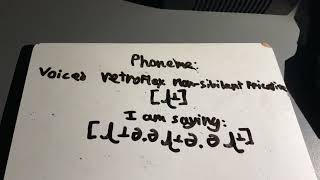 Phoneme:
Voiced retroflex non-sibilant fricative
[ɻ˔]
I am saying:
[ɻ˔ə.əɻ˔ə.əɻ˔]